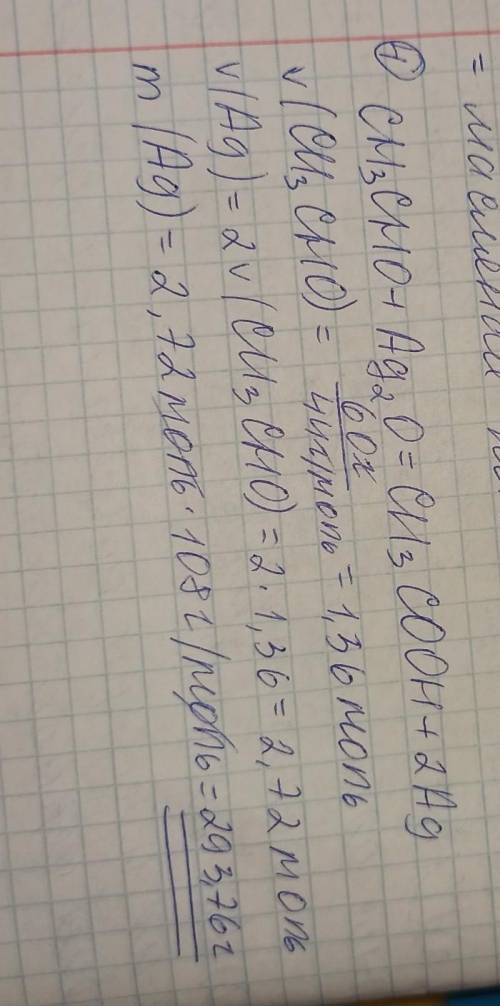 = масляная
④ CH₃CHO + Ag₂O = CH₃COOH + 2Ag
ν(CH₃CHO) = 60г / 44г/моль = 1,36 моль
ν(Ag) = 2ν(CH₃CHO) = 2 · 1,36 = 2,72 моль
m(Ag) = 2,72 моль · 108 г/моль = 293,76г